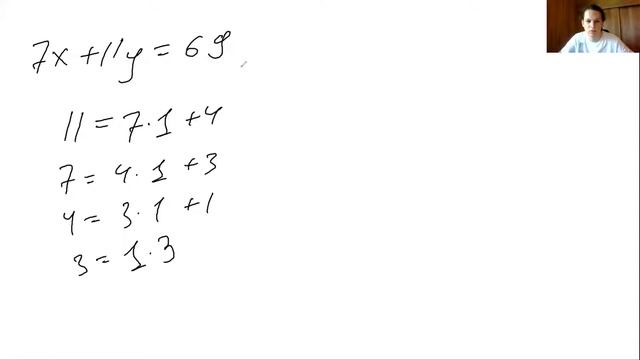 7x+11y=69
11=7·1+4
7=4·1+3
4=3·1+1
3=1·3